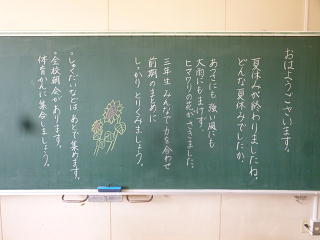 おはようございます。
夏休みが終わりましたね。
どんな夏休みでしたか。
あつさにも 強い風にも
大雨にもまけず、
ヒマワリの花がさきました。
三年生 みんなで力を合わせ
前期のまとめに
しっかり とりくみましょう。
○しゅくだいなどは、あとで集めます。
○全校朝会があります。
体育かんに集合しましょう。